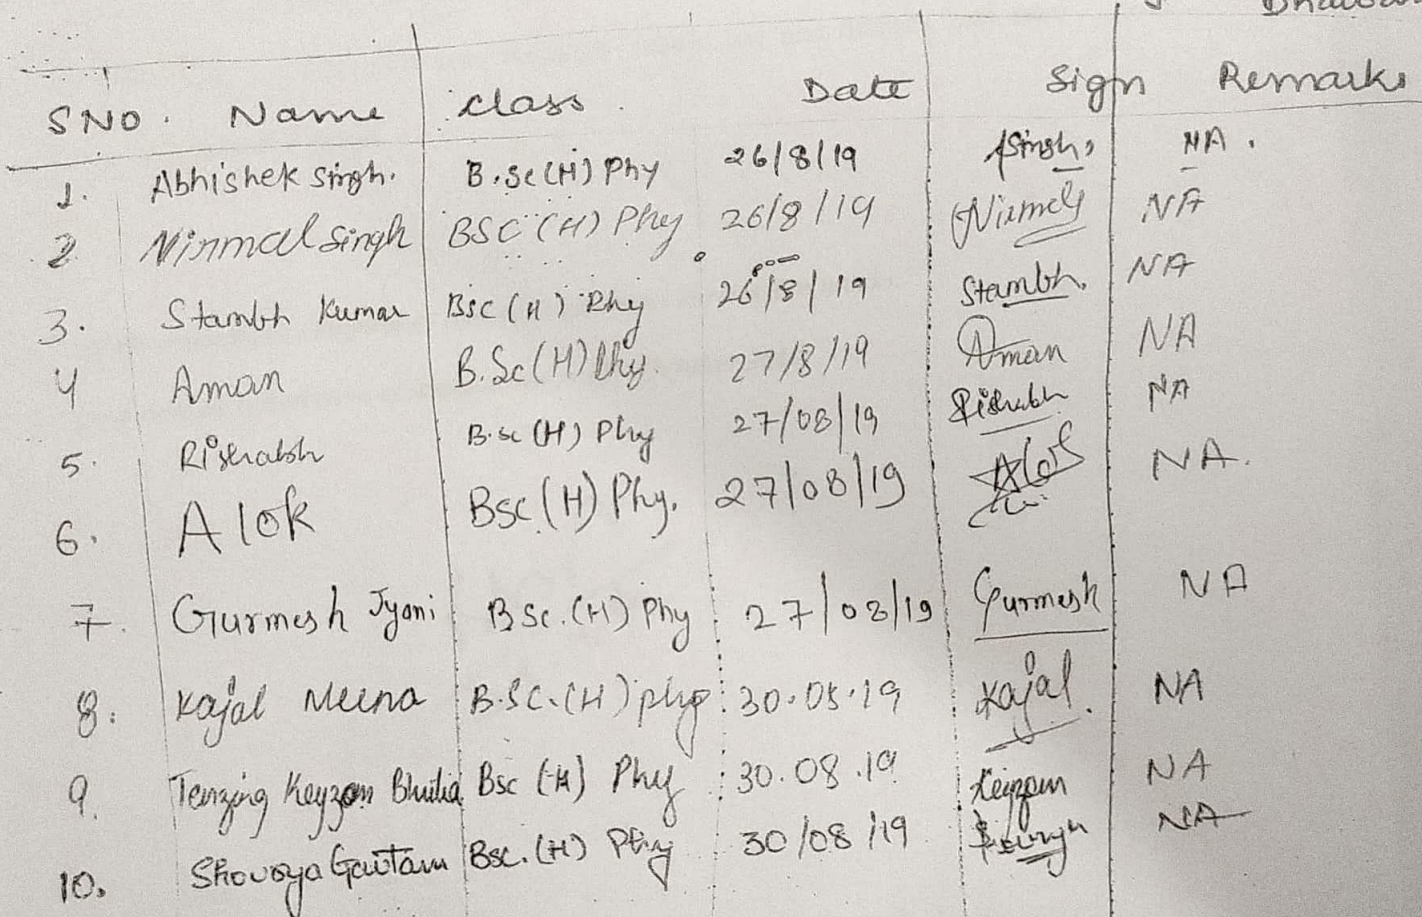 SNO. Name class. Date Sign Remarks
1. Abhishek Singh. B.Sc(H) Phy 26/8/19 ASingh, NA.
2 Nirmal Singh BSC (H) Phy 26/8/19 Nirmal NA
3. Stambh Kumar BSc (H) Phy 26/8/19 Stambh. NA
4 Aman B.Sc(H) Phy. 27/8/19 Aman NA
5. Rishabh B.sc (H) Phy 27/08/19 Rishabh NA
6. Alok Bsc (H) Phy. 27/08/19 Alok NA.
7. Gurmesh Jyani BSc.(H) Phy 27/08/19 Gurmesh NA
8. Kajal Meena B.SC.(H) phy 30.08.19 Kajal. NA
9. Tenzing Keyzom Bhutia Bsc (H) Phy 30.08.19 NA
10. Shourya Gautam Bsc. (H) Phy 30/08/19 Shourya NA